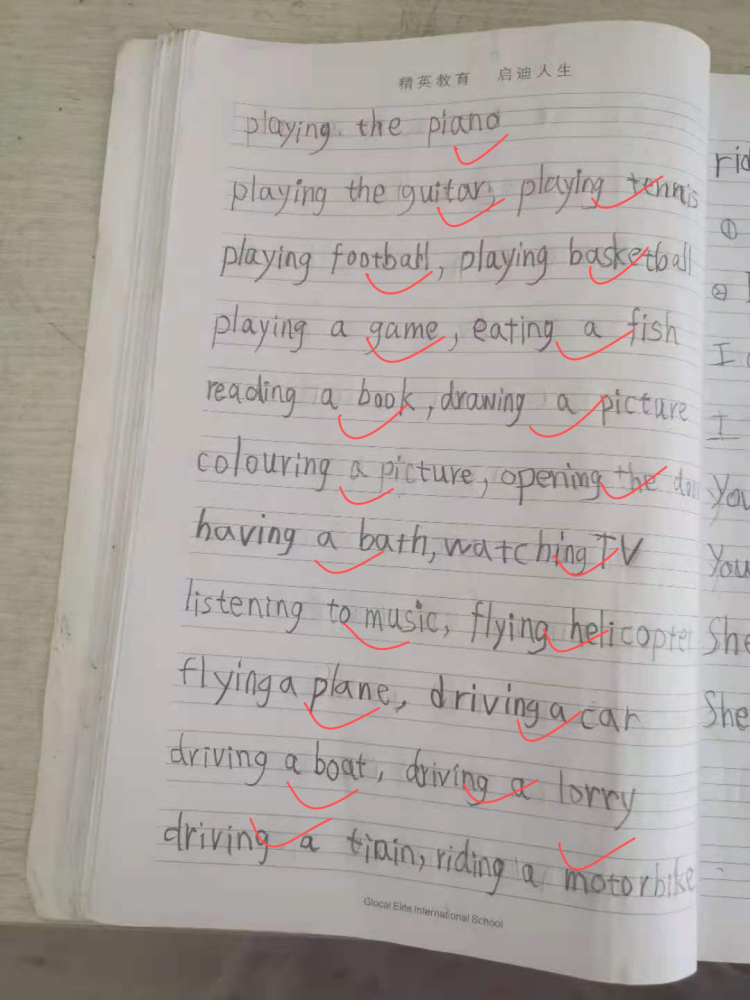 精英教育 启迪人生
playing the piano
playing the guitar, playing tennis
playing football, playing basketball
playing a game, eating a fish
reading a book, drawing a picture
colouring a picture, opening the
having a bath, watching TV
listening to music, flying helicopter
flying a plane, driving a car
driving a boat, driving a lorry
driving a tiain, riding a motorbike
Glocal Elite International School
rid
①
②
I
I
You
You
She
She